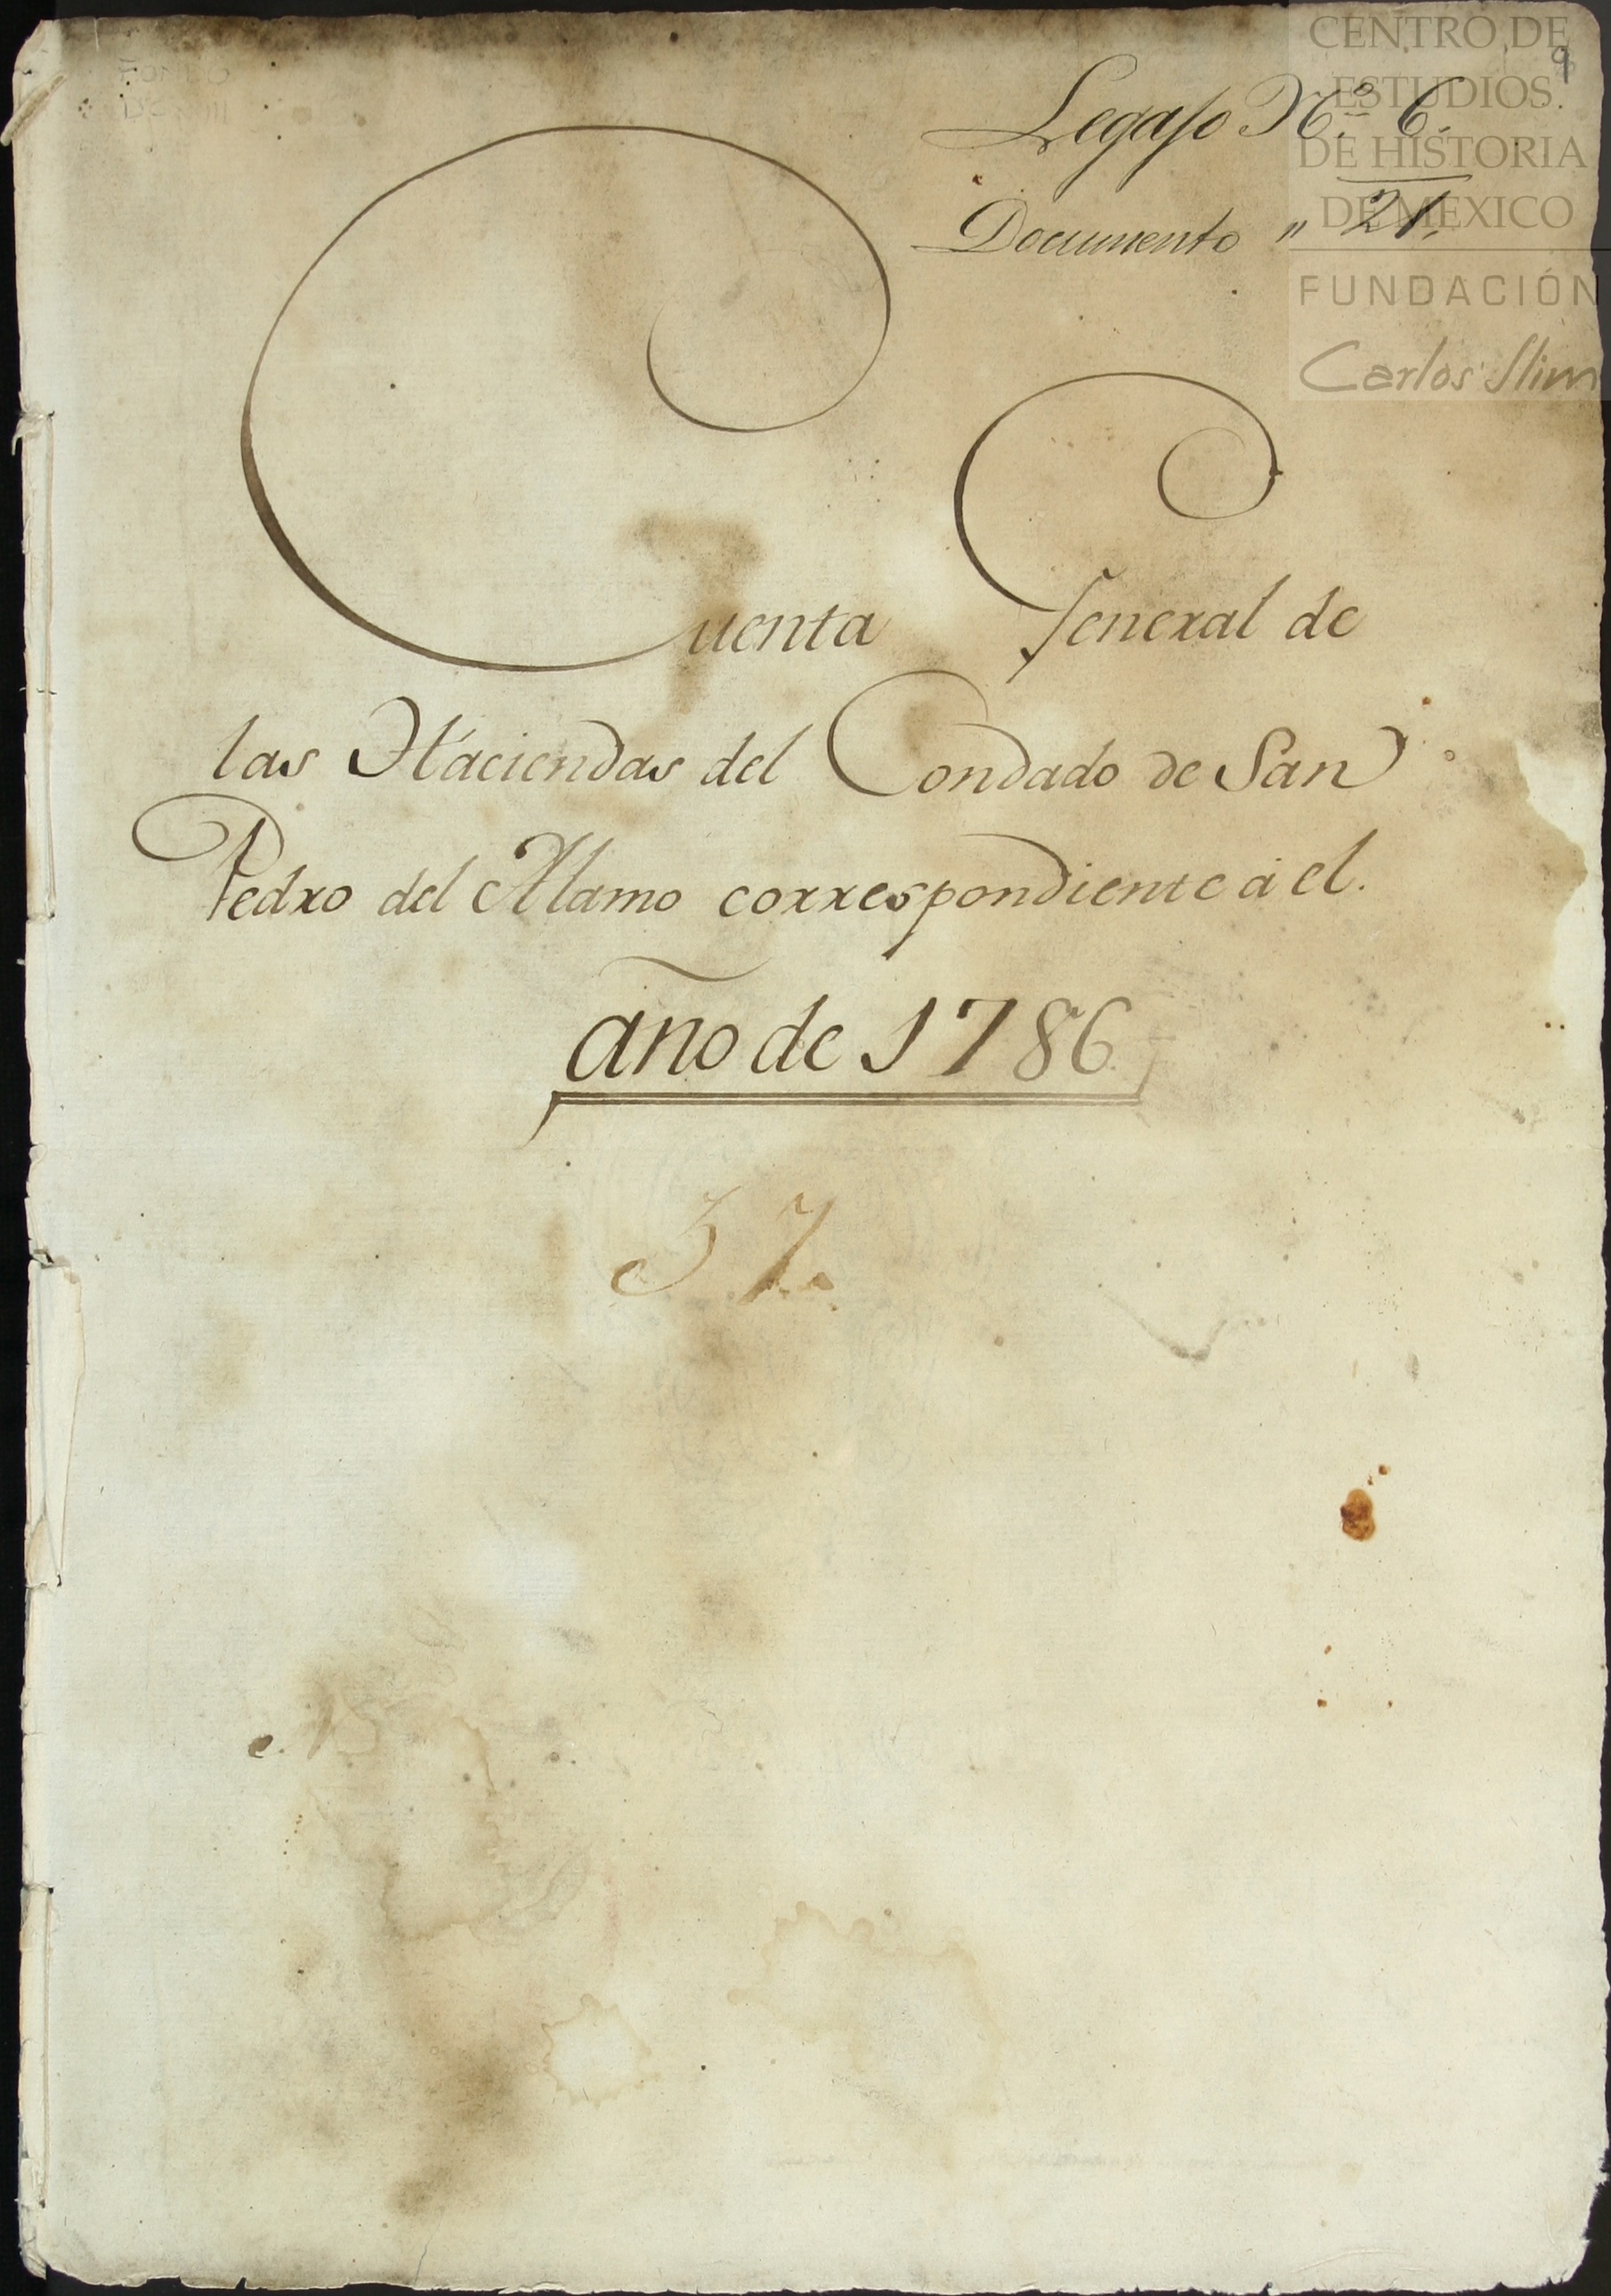 9
Legajo N.º 6.
Documento " 21.
Cuenta General de
las Haciendas del Condado de San
Pedro del Alamo correspondiente á el.
año de 1786
37.
CENTRO DE
ESTUDIOS
DE HISTORIA
DE MÉXICO
FUNDACIÓN
Carlos Slim